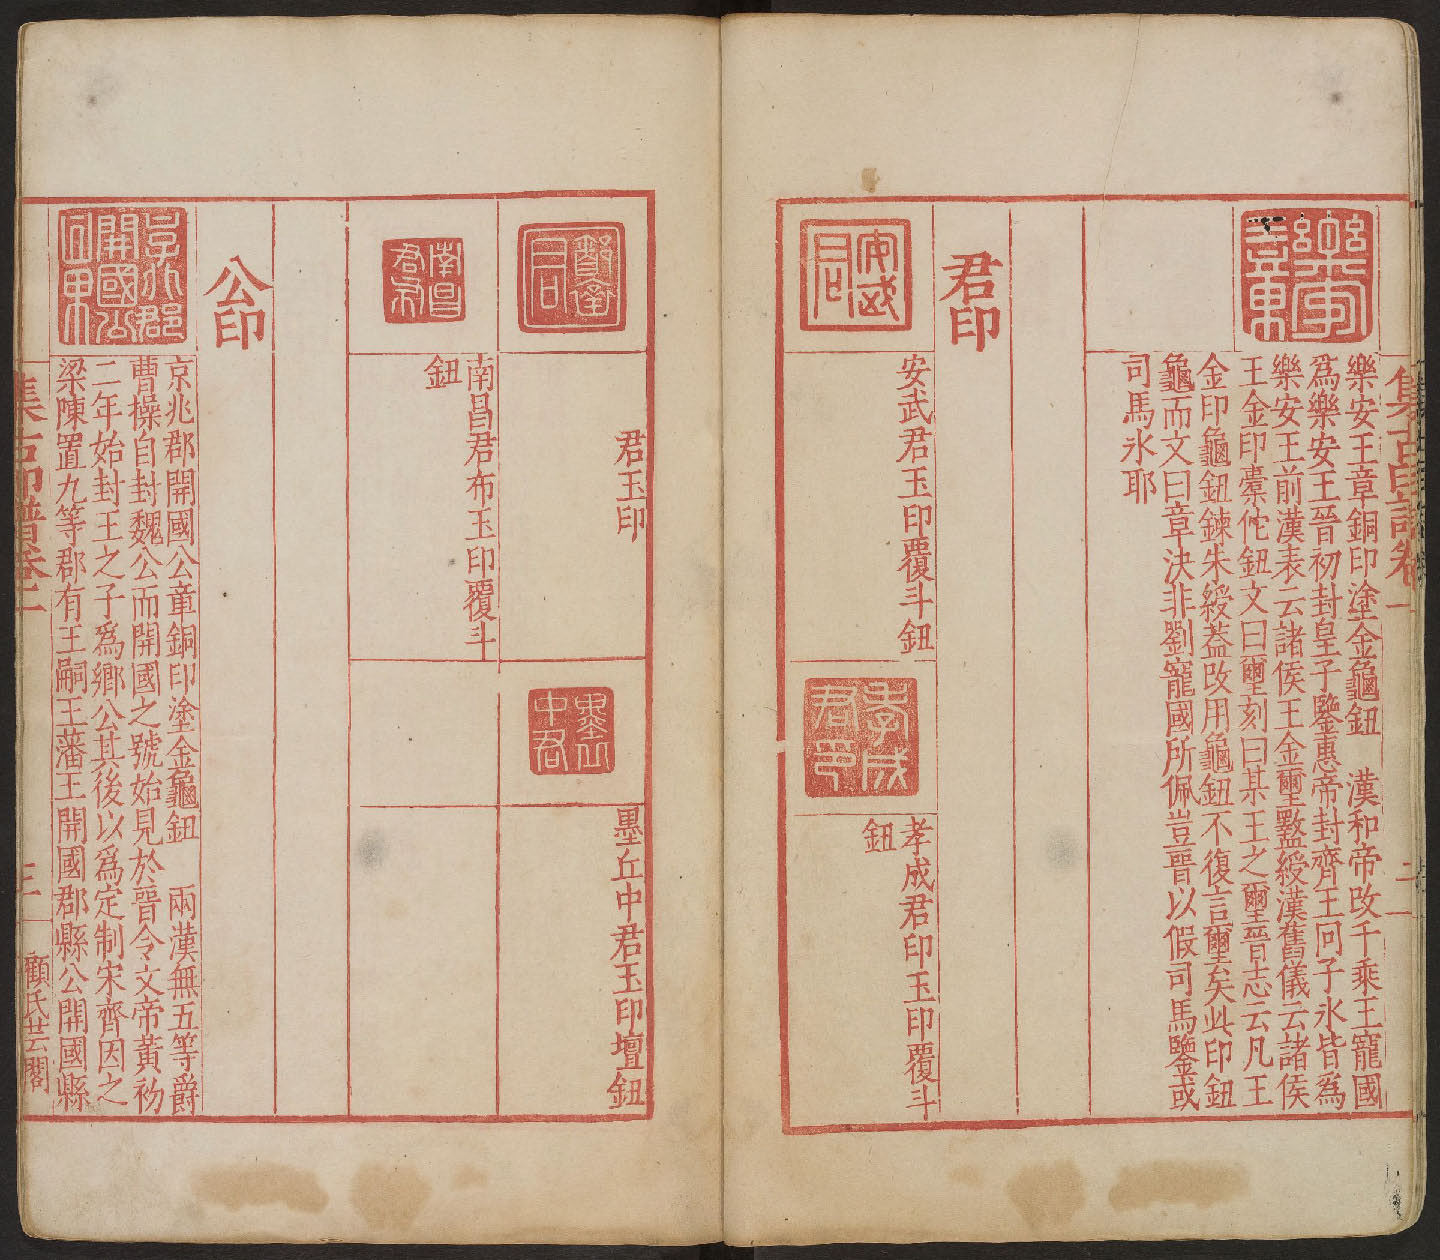 集古印譜卷一
二
樂安王章銅印塗金龜鈕　漢和帝改千乘王寵國
爲樂安王晉初封皇子鑒惠帝封齊王冏子氷皆爲
樂安王前漢表云諸侯王金璽盭綬漢舊儀云諸侯
王金印橐佗鈕文曰璽刻曰某王之璽晉志云凡王
金印龜鈕鍊朱綬蓋改用龜鈕不復言璽矣此印鈕
龜而文曰章決非劉寵國所佩豈晉以假司馬鑒或
司馬氷耶
君印
安武君玉印覆斗鈕
孝成君印玉印覆斗
鈕
君玉印
墨丘中君玉印壇鈕
南昌君布玉印覆斗
鈕
公印
京兆郡開國公章銅印塗金龜鈕　兩漢無五等爵
曹操自封魏公而開國之號始見於晉令文帝黃初
二年始封王之子爲鄉公其後以爲定制宋齊因之
梁陳置九等郡有王嗣王藩王開國郡縣公開國縣
集古印譜卷一
三
顧氏芸閣